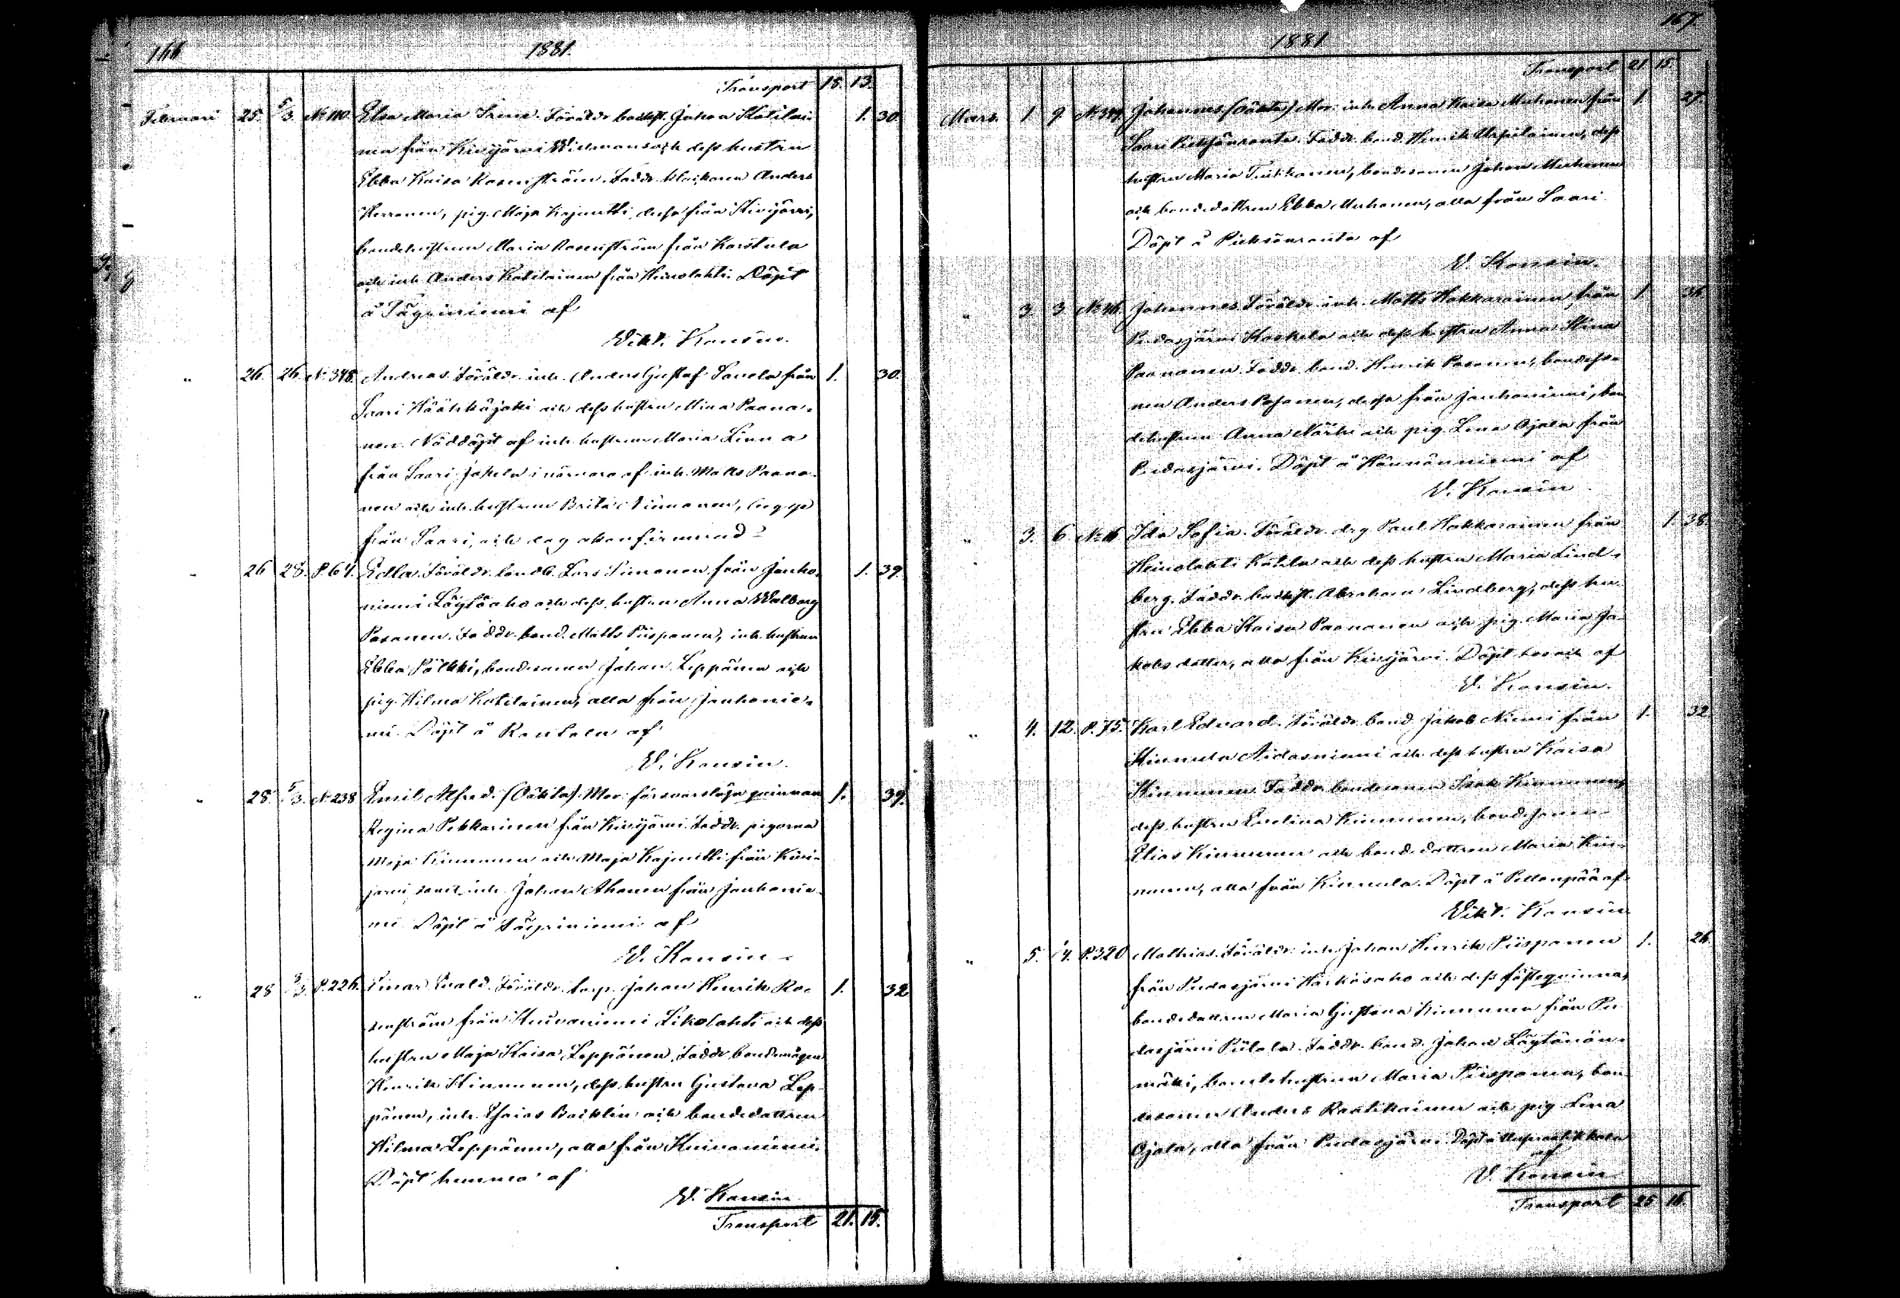 166
1881.
Transport 18. 13.
Februari 25. 5/3. No 110. Elsa Maria Irene. Föräldr. backst. Johan Kotilai- 1. 30.
nen från Kivijärvi och dess hustru
Ebba Kaisa Rosenström. Faddr. Anders
Herranen, pig. Maja Kajmitti, dessa från Kivijärvi,
bondehustrun Maria Rosenström från Karstula
och inh. Anders Kotilainen från Heinolahti. Döpt
å Tägeriniemi af
Vikt. Konsin.
" 26. 26. No 348. Andreas. Föräldr. inh. Anders Gustaf Sanola från 1. 30.
Saari Häähkäjoki och dess hustru Mina Paana-
nen. Nöddöpt af inh. hustrun Maria Linna
från Saari Jokela i närvaro af inh. Matts Paana-
nen och inh. hustrun Brita Niinonen,
från Saari, och dag akonfirmerad
" 26 28. P. 64. Edla. Föräldr. bond. Lars Simonen från Jonko- 1. 39.
niemi Löytöaho och dess hustru Anna Walborg
Pasanen. Faddr. bond. Matts Piispanen, inh. hustrun
Ebba Pölkki, bondesonen Johan Leppänen och
pig. Hilma Kotilainen, alla från Jonkonie-
mi. Döpt å Rantala af
V. Konsin.
" 28 5/3. No 238 Emil Alfred. (Oäkta). Mor: försvarslösa qvinnan 1. 39.
Regina Pekkarinen från Kivijärvi. Faddr. pigorna
Maja Kinnunen och Maja Kajmitti från Kivi-
järvi, samt inh. Johan Ahonen från Jonkonie-
mi. Döpt å Tägeriniemi af
V. Konsin.
" 28 /3. P. 226. Einar Evald. Föräldr. torp. Johan Henrik Ro- 1. 32
senström från Kuivaniemi Likolahti och dess
hustru Maja Kaisa Leppänen. Faddr. bondemågen
Henrik Kinnunen, dess hustru Gustava Lep-
pänen, inh. Esaias Backlin och bondedottren
Hilma Leppänen, alla från Kuivaniemi.
Döpt hemma af
V. Konsin.
Transport 21. 15.
167.
1881.
Transport 21 15.
Mars. 1 9. No 349. Johannes. (Oäkta) Mor: inh. Anna Kaisa Muhonen från 1. 27.
Saari Pieksänranta. Faddr. bond. Henrik, dess
hustru Maria, bondesonen Johan Muhonen
och bondedottren Ebba Muhonen, alla från Saari.
Döpt å Pieksänranta af
V. Konsin.
" 3. 3 No 46. Johannes. Föräldr. inh. Matts Hakkarainen från 1. 36.
Pudasjärvi Koskela och dess hustru Anna Stina
Paananen. Faddr. bond. Henrik Pasanen, bondeso-
nen Anders Pasanen, dessa från Jonkoniemi, bon-
dehustrun Anna Närhi och pig. Lena Ojala från
Pudasjärvi. Döpt å Hännänniemi af
V. Konsin
" 3. 6 No 16 Ida Sofia. Föräldr. drg Paul Hakkarainen från 1. 38.
Heinolahti Kotila och dess hustru Maria Lind-
berg. Faddr. backst. Abraham Lindberg, dess hu-
stru Ebba Kaisa Paananen och pig. Maria Ja-
kobsdotter, alla från Kivijärvi. Döpt hos och af
V. Konsin.
" 4. 12. P. 75. Karl Edvard. Föräldr. bond. Jakob Niemi från 1. 32
Kinnula Aidasniemi och dess hustru Kaisa
Kinnunen. Faddr. bondesonen Isak Kinnunen,
dess hustru Evelina Kinnunen, bondesonen
Elias Kinnunen och bond. dottren Maria Kin-
nunen, alla från Kinnula. Döpt å Pellonpää af
Vikt. Konsin
" 5. 14. P. 320 Mathias. Föräldr. inh. Johan Henrik Piispanen 1. 26.
från Pudasjärvi Härkösaho och dess fästeqvinna,
bondedottren Maria Gustava Kinnunen från Pu-
dasjärvi Piilola. Faddr. bond. Johan Löytänön-
mäki, bondehustrun Maria Piispanen, bon-
desonen Anders Rautikainen och pig. Lena
Ojala, alla från Pudasjärvi. Döpt å
af
V. Konsin
Transport 25 16.